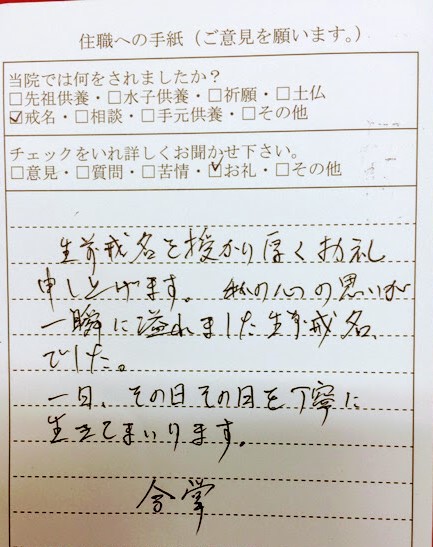 住職への手紙（ご意見を願います。）
当院では何をされましたか？
□先祖供養・□水子供養・□祈願・□土仏
☑戒名・□相談・□手元供養・□その他
チェックをいれ詳しくお聞かせ下さい。
□意見・□質問・□苦情・☑お礼・□その他
生前戒名を授かり厚くお礼
申し上げます。私の心の思いが
一瞬に溢れました生前戒名
でした。
一日、その日その日を丁寧に
生きてまいります。
合掌